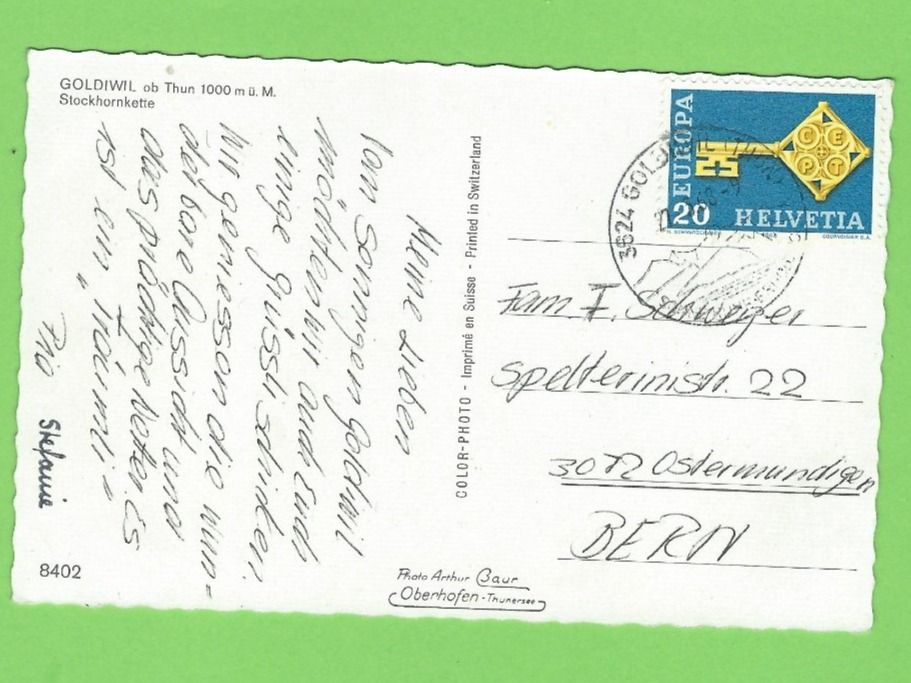 GOLDIWIL ob Thun 1000 m ü. M.
Stockhornkette
Meine Lieben
Vom sonnigen Goldiwil
möchten wir auch Euch
einige Grüssli schicken.
Wir geniessen die wun-
derbare Aussicht und
das prächtige Wetter. Es
ist ein „Träumli"
Stefanie
8402
COLOR-PHOTO - Imprimé en Suisse - Printed in Switzerland
Photo Arthur Baur
Oberhofen-Thunersee
EUROPA
CEPT
20 HELVETIA
3624 GOLDIWIL (THUN)
Fam F. Schweizer
Spelterinistr. 22
3072 Ostermundigen
BERN